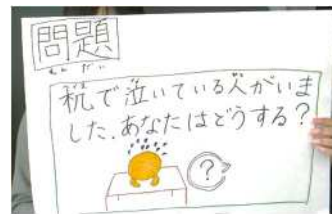 問題
もんだい
机で泣いている人がいま
した.あなたはどうする?
?